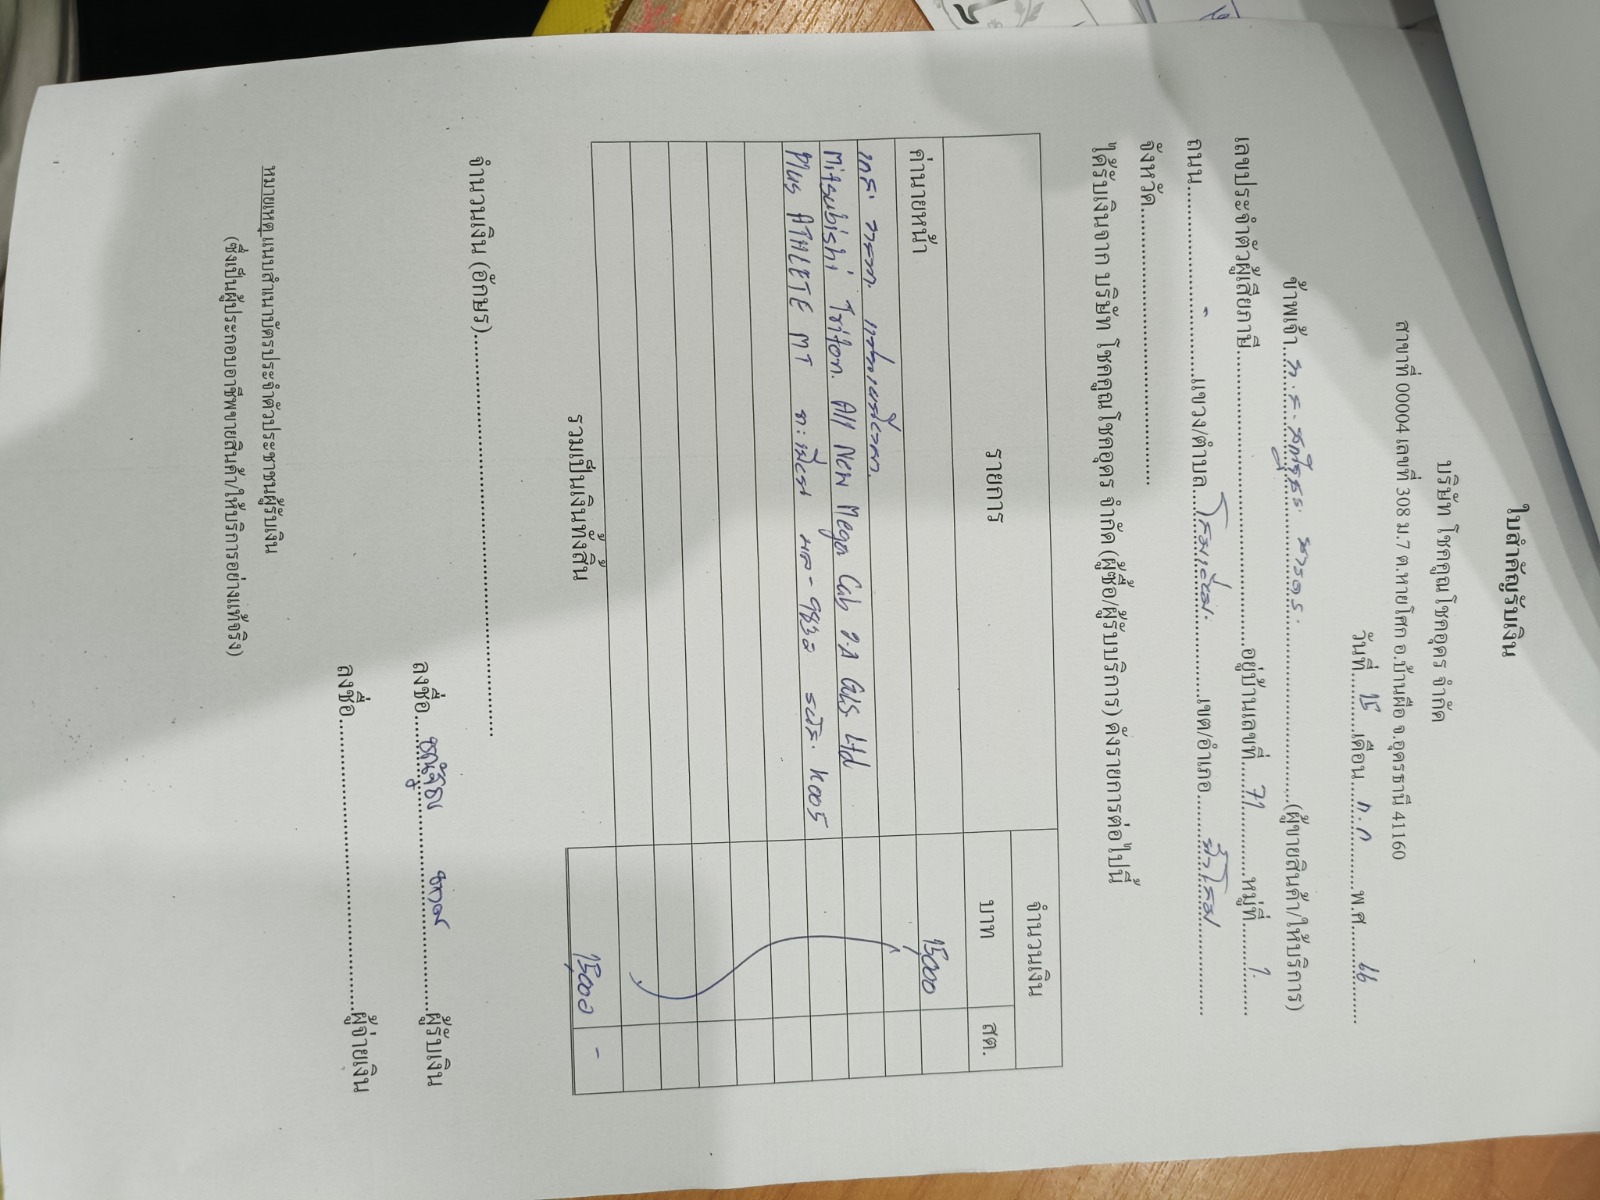 ใบสำคัญรับเงิน
บริษัท โชคคูณโชคอุดร จำกัด
สาขาที่ 00004 เลขที่ 308 ม.7 ต.หายโศก อ.บ้านผือ จ.อุดรธานี 41160
วันที่ 15 เดือน ก.ค พ.ศ. 66
ข้าพเจ้า (ผู้ขายสินค้า/ให้บริการ)
เลขประจำตัวผู้เสียภาษี อยู่บ้านเลขที่ 71 หมู่ที่ 1.
ถนน - แขวง/ตำบล เขต/อำเภอ น้ำโสม
จังหวัด
ได้รับเงินจาก บริษัท โชคคูณโชคอุดร จำกัด (ผู้ซื้อ/ผู้รับบริการ) ดังรายการต่อไปนี้
รายการ จำนวนเงิน
บาท สต.
ค่านายหน้า 15,000
Mitsubishi Triton. All New Mega Cab 2.4 GLS Ltd
Plus ATHLETE MT ทะเบียน ผล-9832 รหัส. K005
รวมเป็นเงินทั้งสิ้น 15,000 -
จำนวนเงิน (อักษร)
ลงชื่อ ผู้รับเงิน
ลงชื่อ ผู้จ่ายเงิน
หมายเหตุ แนบสำเนาบัตรประจำตัวประชาชนผู้รับเงิน
(ซึ่งเป็นผู้ประกอบอาชีพขายสินค้า/ให้บริการอย่างแท้จริง)